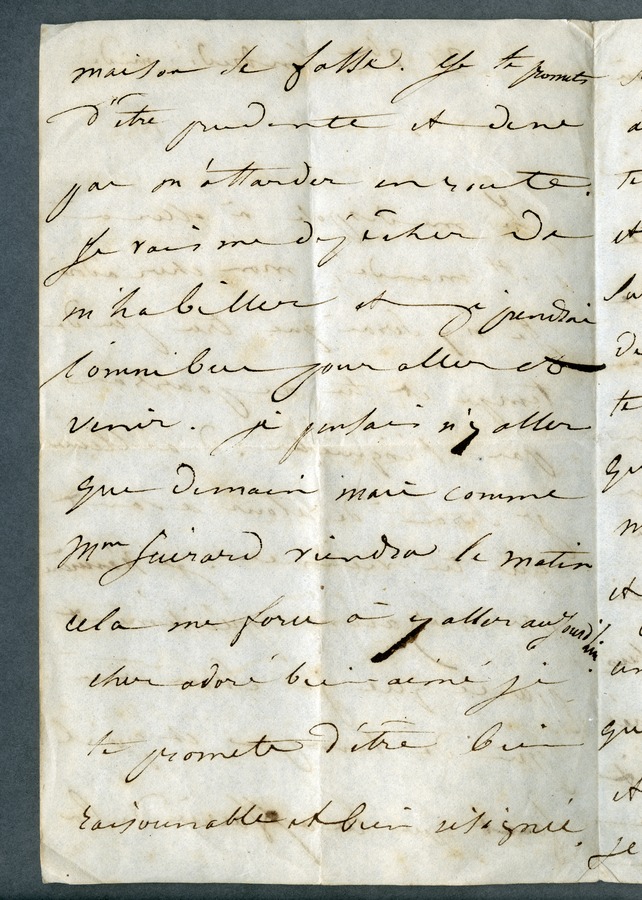 maison de fossé. Je te promets
d'être prudente et de ne
pas m'attarder en route.
Je vais me dépêcher de
m'habiller et je prendrai
l'omnibus pour aller et
venir. je pensais n'y aller
que demain mais comme
Mme Guérard viendra le matin
cela me force à y aller aujourd'hui.
cher adoré bien-aimé je
te promets d'être bien
raisonnable et bien résignée.